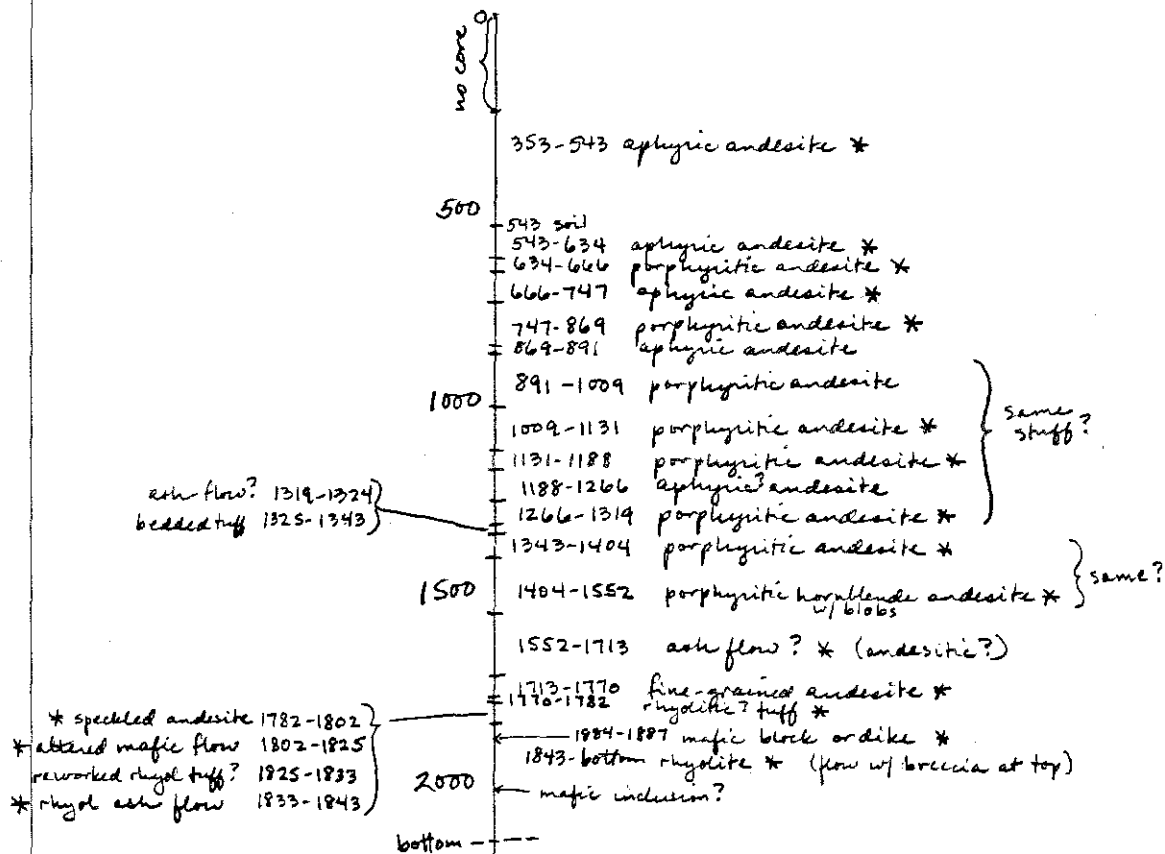 0
no core
353-543 aphyric andesite *
500
543 soil
543-634 aphyric andesite *
634-666 porphyritic andesite *
666-747 aphyric andesite *
747-869 porphyritic andesite *
869-891 aphyric andesite
891-1009 porphyritic andesite
1000
same stuff?
1009-1131 porphyritic andesite *
1131-1188 porphyritic andesite *
1188-1266 aphyric? andesite
ash-flow? 1319-1324
bedded tuff 1325-1343
1266-1319 porphyritic andesite *
1343-1404 porphyritic andesite *
same?
1500
1404-1552 porphyritic hornblende andesite *
w/ blobs
1552-1713 ash flow? * (andesitic?)
1713-1770 fine-grained andesite *
1770-1782 rhyolitic? tuff *
* speckled andesite 1782-1802
* altered mafic flow 1802-1825
reworked rhyol tuff? 1825-1833
* rhyol ash flow 1833-1843
1884-1887 mafic block or dike *
1843-bottom rhyolite * (flow w/ breccia at top)
2000
mafic inclusion?
bottom